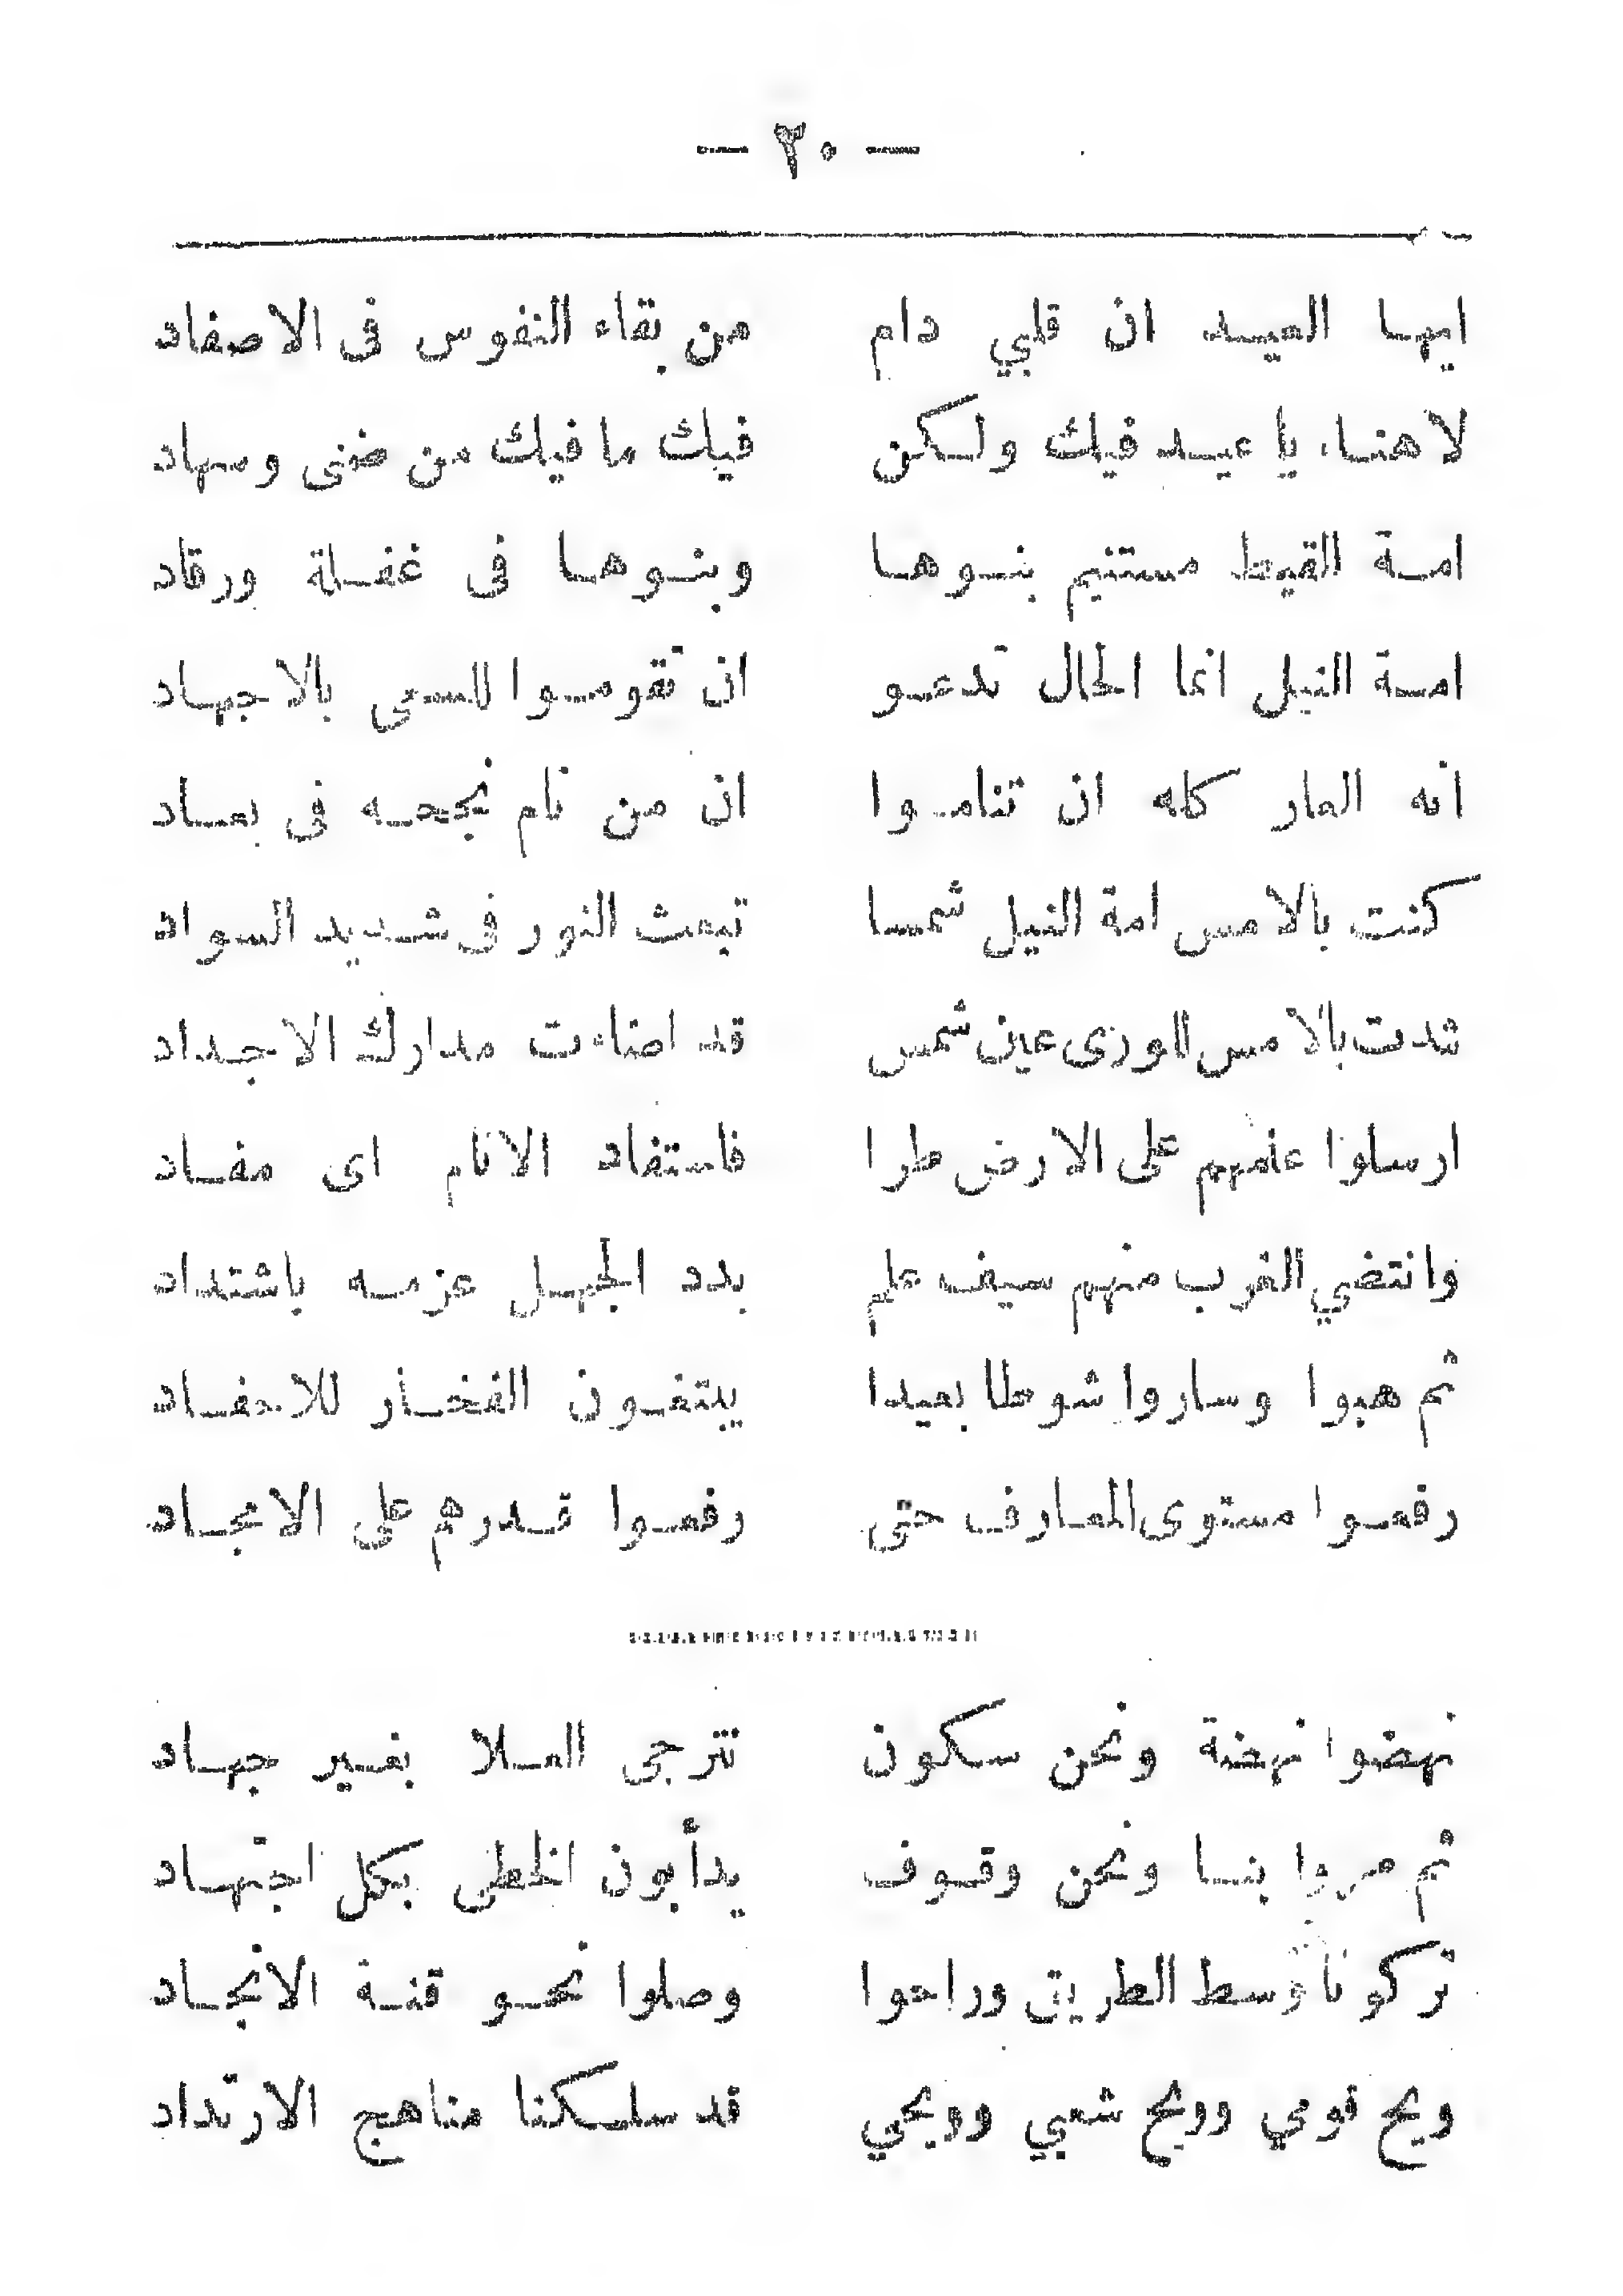 — ٢٠ —
ايها العيد ان قلبي دام من بقاء النفوس فى الاصفاد
لا هناء يا عيد فيك ولكن فيك ما فيك من ضنى وسهاد
امة القبط مستنيم بنوها وبنوها فى غفلة ورقاد
امة النيل انما الحال تدعو ان تقوموا للسعى بالاجهاد
انه العار كله ان تناموا ان من نام نجحه فى بعاد
كنت بالامس امة النيل شمسا تبعث النور فى شديد السواد
شدت بالامس للورى عين شمس قد اضاءت مدارك الاجداد
ارسلوا علمهم على الارض طرا فاستفاد الانام اى مفاد
وانتضي الغرب منهم سيف علم بدد الجهل عزمه باشتداد
ثم هبوا وساروا شوطا بعيدا يبتغون الفخار للاحفاد
رفعوا مستوى المعارف حتى رفعوا قدرهم على الامجاد
نهضوا نهضة ونحن سكون نترجى العلا بغير جهاد
ثم مروا بنا ونحن وقوف يدأبون الخطى بكل اجتهاد
تركونا وسط الطريق وراحوا وصلوا نحو قنة الانجاد
ويح قومي وويح شعبي وويحي قد سلكنا مناهج الارتداد